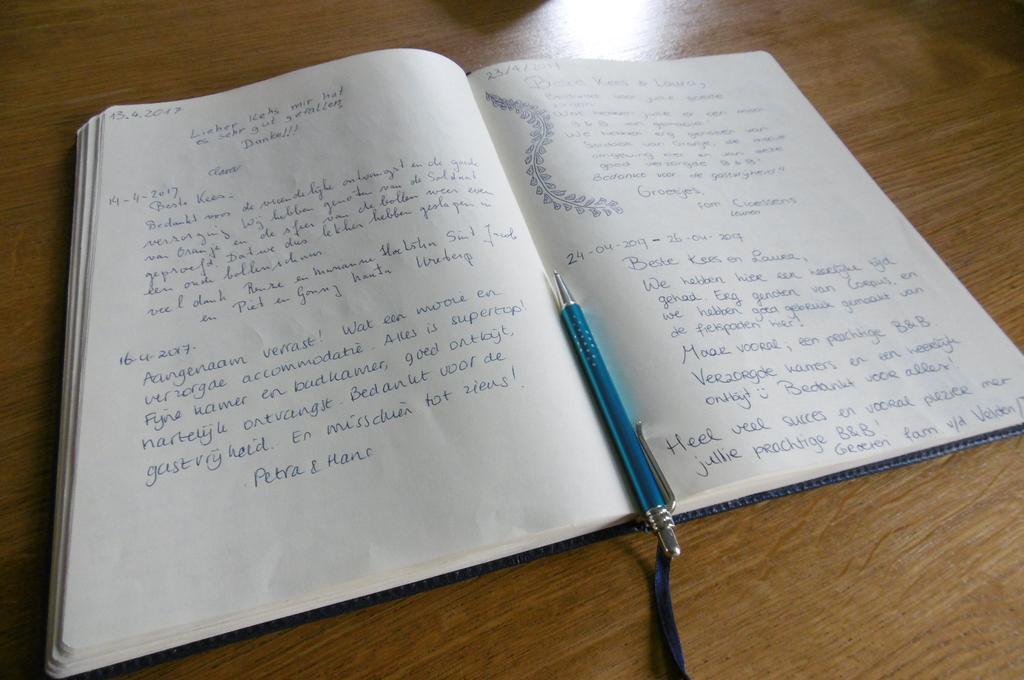 13.4.2017
Lieber Kehs mir hat
es sehr gut gefallen
Danke!!!
Clara
14-4-2017
Beste Kees.
Bedankt voor de vriendelijke ontvangst en de goede
verzorging. Wij hebben genoten van de Soldaat
van Oranje en de sfeer van de bollen weer even
geproefd. Dat we dus lekker hebben geslapen in
een oude bollenschuur
veel dank Renze en Marianne Sint Jacob
en Piet en Ureterp
16-4-2017.
Aangenaam verrast! Wat een mooie en
verzorgde accommodatie. Alles is supertop!
Fijne kamer en badkamer, goed ontbijt,
hartelijke ontvangst. Bedankt voor de
gastvrijheid. En misschien tot ziens!
Petra & Hans
23/4/2017
Beste Kees & Laura,
Bedankt voor jullie goede
zorgen.
Wat hebben jullie er een mooi
B&B van gemaakt!
We hebben erg genoten van
Soldaat van Oranje, de mooie
omgeving hier en van deze
goed verzorgde B&B!
Bedankt voor de gastvrijheid!!
Groetjes,
fam Claessens
24-04-2017 - 26-04-2017
Beste Kees en Laura,
We hebben hier een heerlijke tijd
gehad. Erg genoten van Corpus, en
we hebben goed gebruik gemaakt van
de fietspaden hier!
Maar vooral; een prachtige B&B.
Verzorgde kamers en een heerlijk
ontbijt :) Bedankt voor alles!
Heel veel succes en vooral plezier met
jullie prachtige B&B!
Groeten fam. v/d Velden/